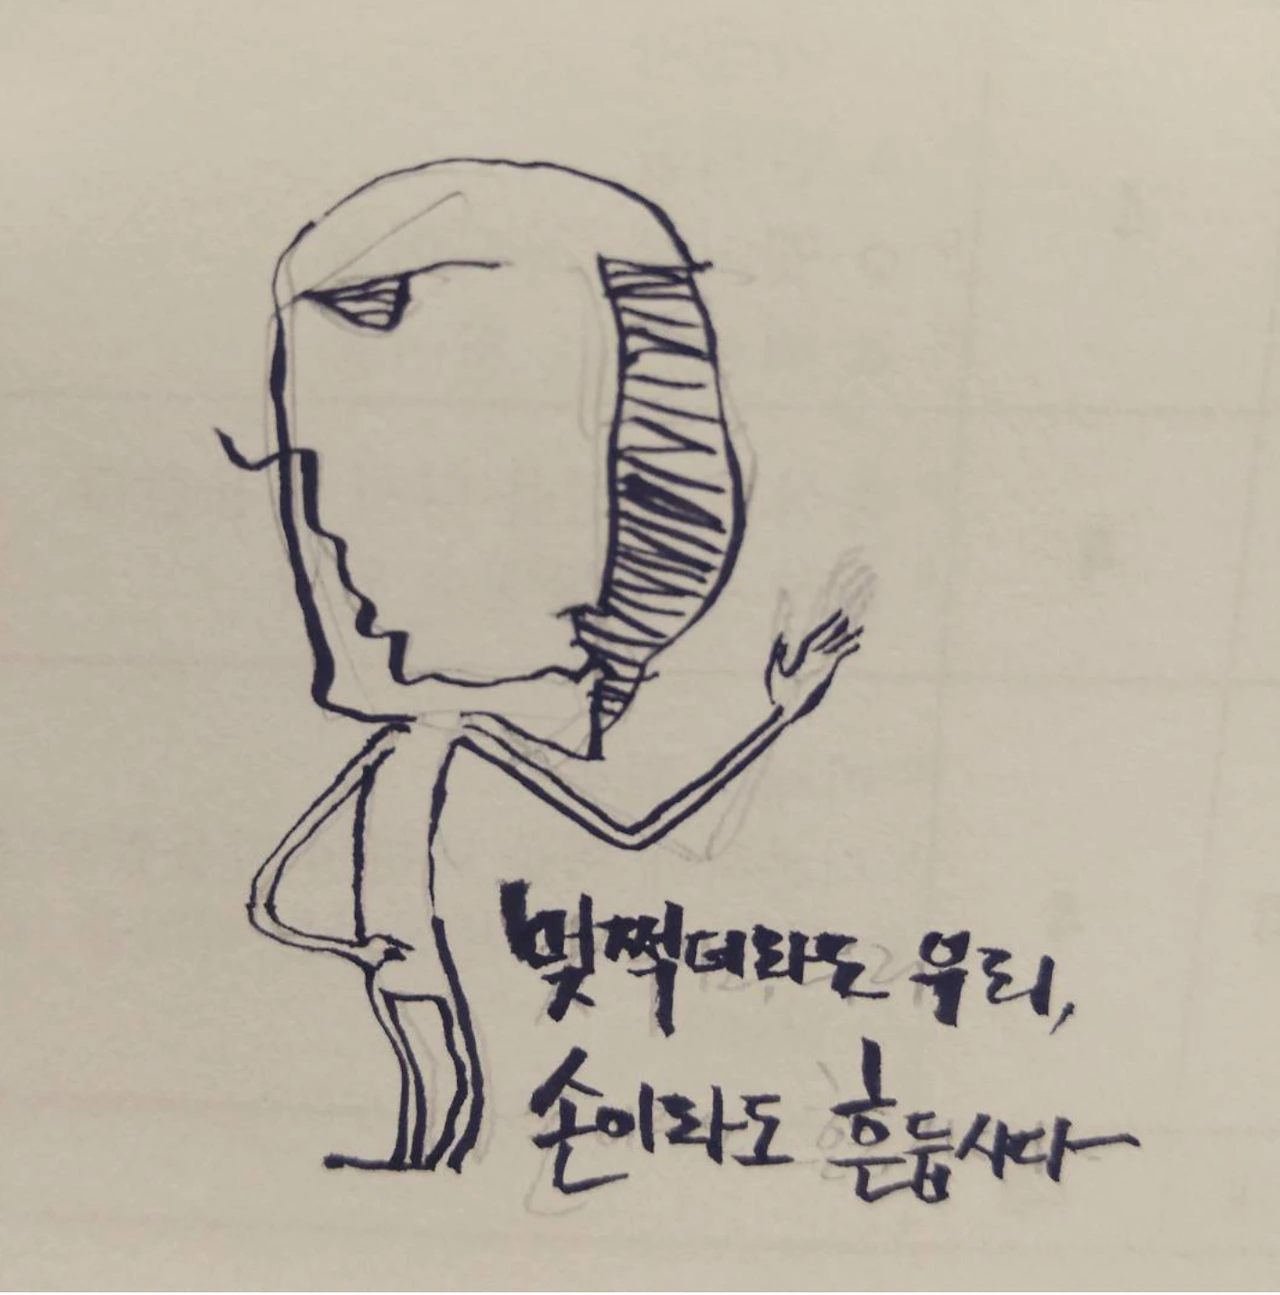 멎쩍데라도 우리,
손이라도 흔듭시다